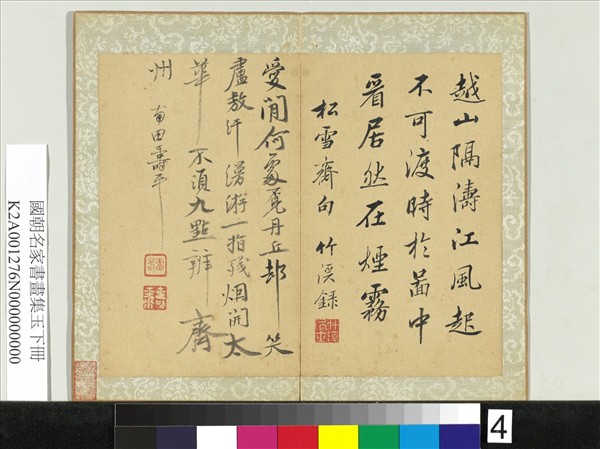 越山隔濤江風起
不可渡時於啚中
看居然在煙霧
松雪齋句 竹溪録
愛閒何處覓丹丘却笑
盧敖汗漫游一指殘烟開太
華不須九點辨齊
州 南田壽平
國朝名家書畫集玉下冊
K2A001276N000000000
4